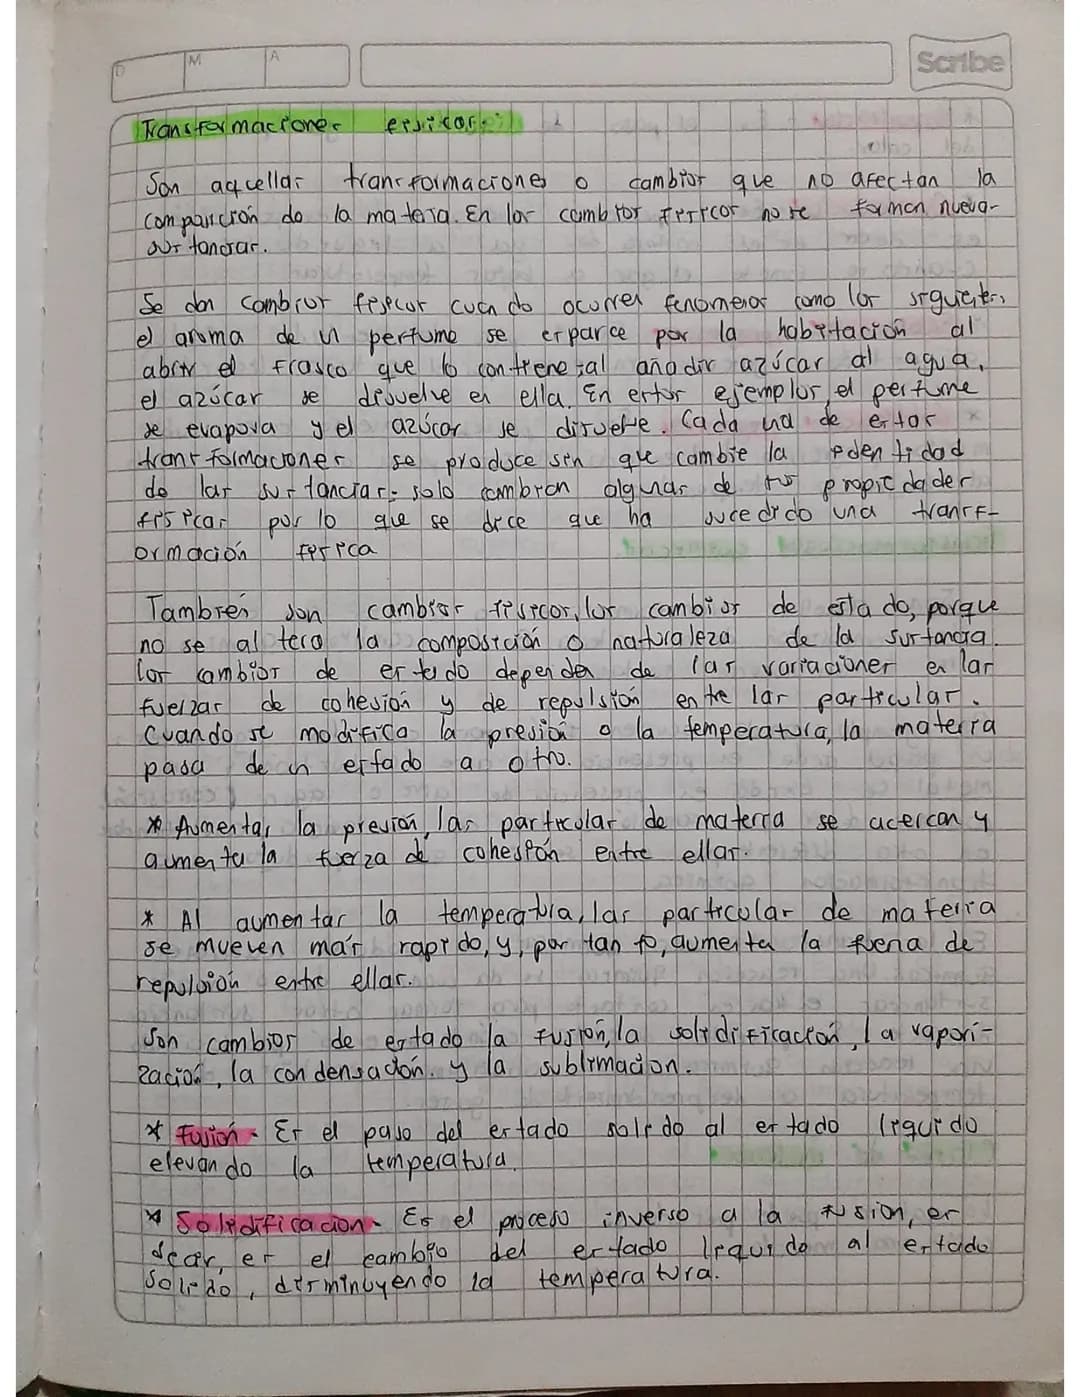 D M A
Scribe
Transformaciones físicas.
Son aquellas transformaciones o cambios que no afectan la
composición de la materia. En los cambios físicos no se forman nuevas
sustancias.
Se dan cambios físicos cuando ocurren fenómenos como los siguientes:
el aroma de un perfume se esparce por la habitación al
abrir el frasco que lo contiene; al añadir azúcar al agua,
el azúcar se disuelve en ella. En estos ejemplos, el perfume
se evapora y el azúcar se disuelve. Cada una de estas
transformaciones se produce sin que cambie la identidad
de las sustancias; solo cambian algunas de sus propiedades
físicas por lo que se dice que ha sucedido una transf-
ormación física
También son cambios físicos, los cambios de estado, porque
no se altera la composición o naturaleza de la sustancia.
Los cambios de estado dependen de las variaciones en las
fuerzas de cohesión y de repulsión entre las particulas.
Cuando se modifica la presión o la temperatura, la materia
pasa de un estado a otro.
* Aumentar la presión, las particulas de materia se acercan y
aumenta la fuerza de cohesión entre ellas.
* Al aumentar la temperatura, las particulas de materia
se mueven más rapido, y, por tanto, aumenta la fuerza de
repulsión entre ellas.
Son cambios de estado la fusión, la solidificación, la vapori-
zación, la condensación. y la sublimacion.
* Fusión - Es el paso del estado solido al estado liquido
elevando la temperatura.
* Solidificacion - Es el proceso inverso a la fusion, es
decir, es el cambio del estado liquido al estado
solido, disminuyendo la temperatura.